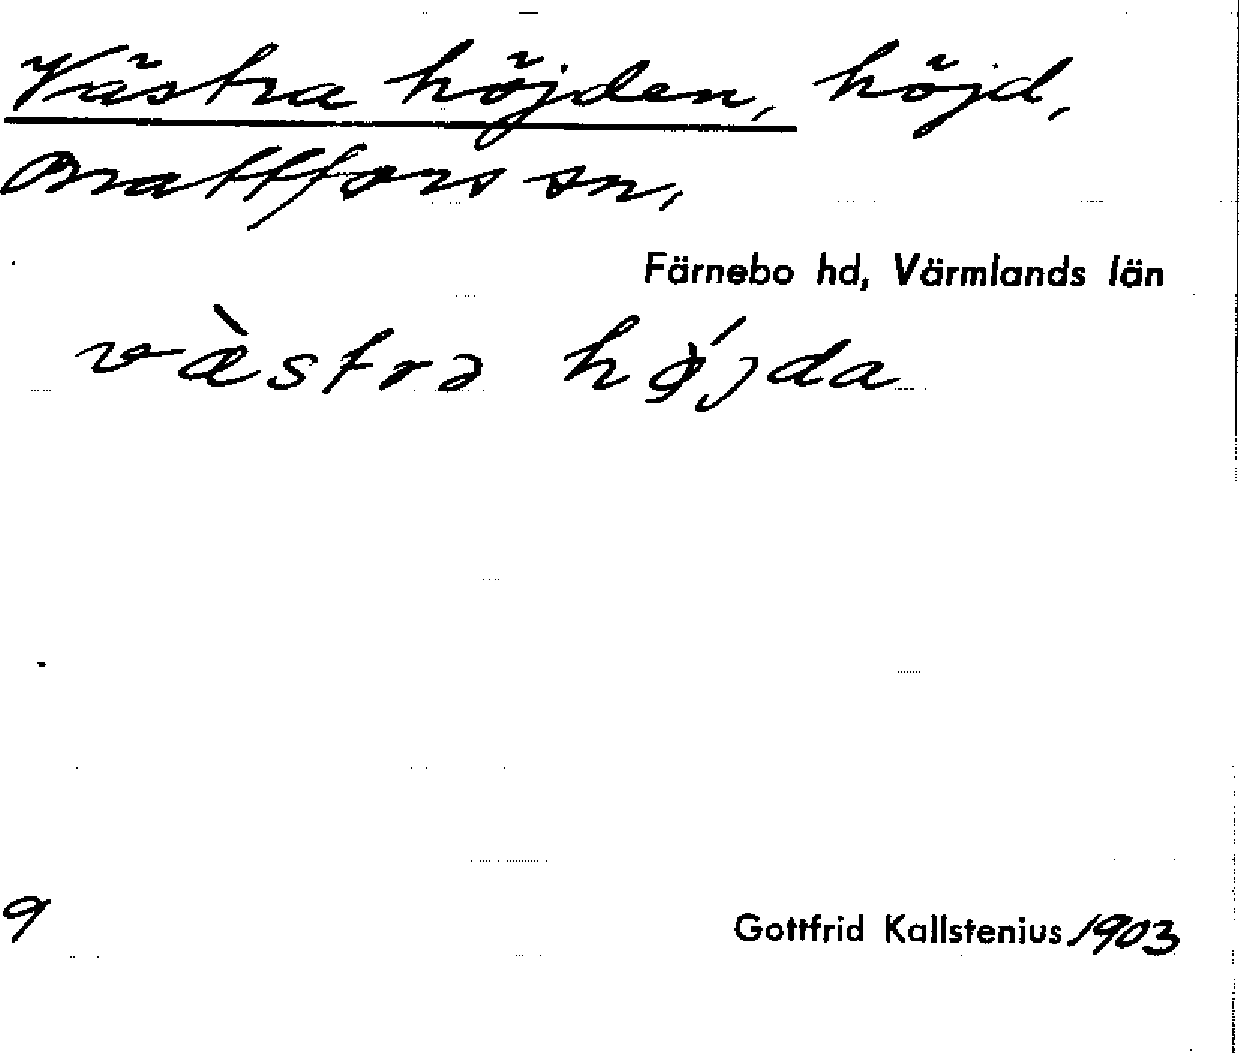 Västra höjden, höjd,
Brattfors sn,
Färnebo hd, Värmlands län
væ̀stra hǿjda
9
Gottfrid Kallstenius 1903